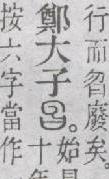 行而曶廢矣
鄭大子曶。始
十年
按六字當作